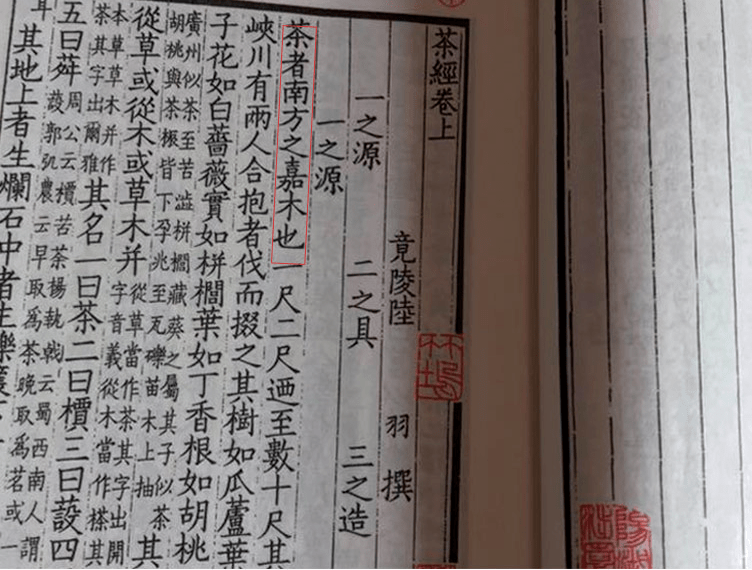 茶經卷上
竟陵陸 羽 撰
一之源 二之具 三之造
一之源
茶者南方之嘉木也一尺二尺迺至數十尺其
峽川有兩人合抱者伐而掇之其樹如瓜蘆葉
子花如白薔薇實如栟櫚葉如丁香根如胡桃
廣州似茶至苦澁栟櫚藏葵之屬其子似茶
胡桃與茶根皆下孕兆至瓦礫苗木上抽
其
從草或從木或草木并
從草當作茶其字出開
字音義從木當作搽其
本草草木并作
茶其字出爾雅
其名一曰茶二曰檟三曰蔎四
五曰荈
周公云檟苦茶楊執戟云蜀西南人謂
蔎郭弘農云早取爲茶晚取爲茗或一
其地上者生爛石中者生櫟壤
耳